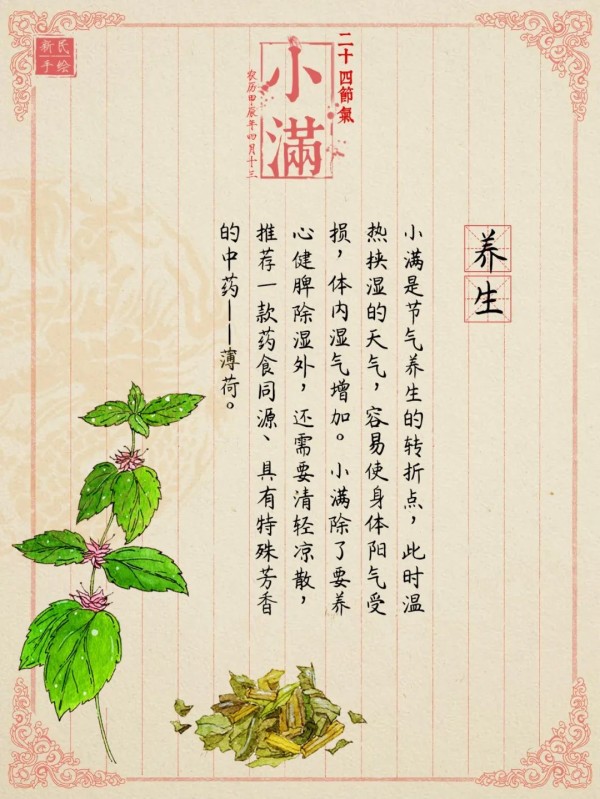 新民
手绘
二十四節氣
小滿
农历甲辰年四月十三
养生
小满是节气养生的转折点，此时温
热挟湿的天气，容易使身体阳气受
损，体内湿气增加。小满除了要养
心健脾除湿外，还需要清轻凉散，
推荐一款药食同源、具有特殊芳香
的中药——薄荷。